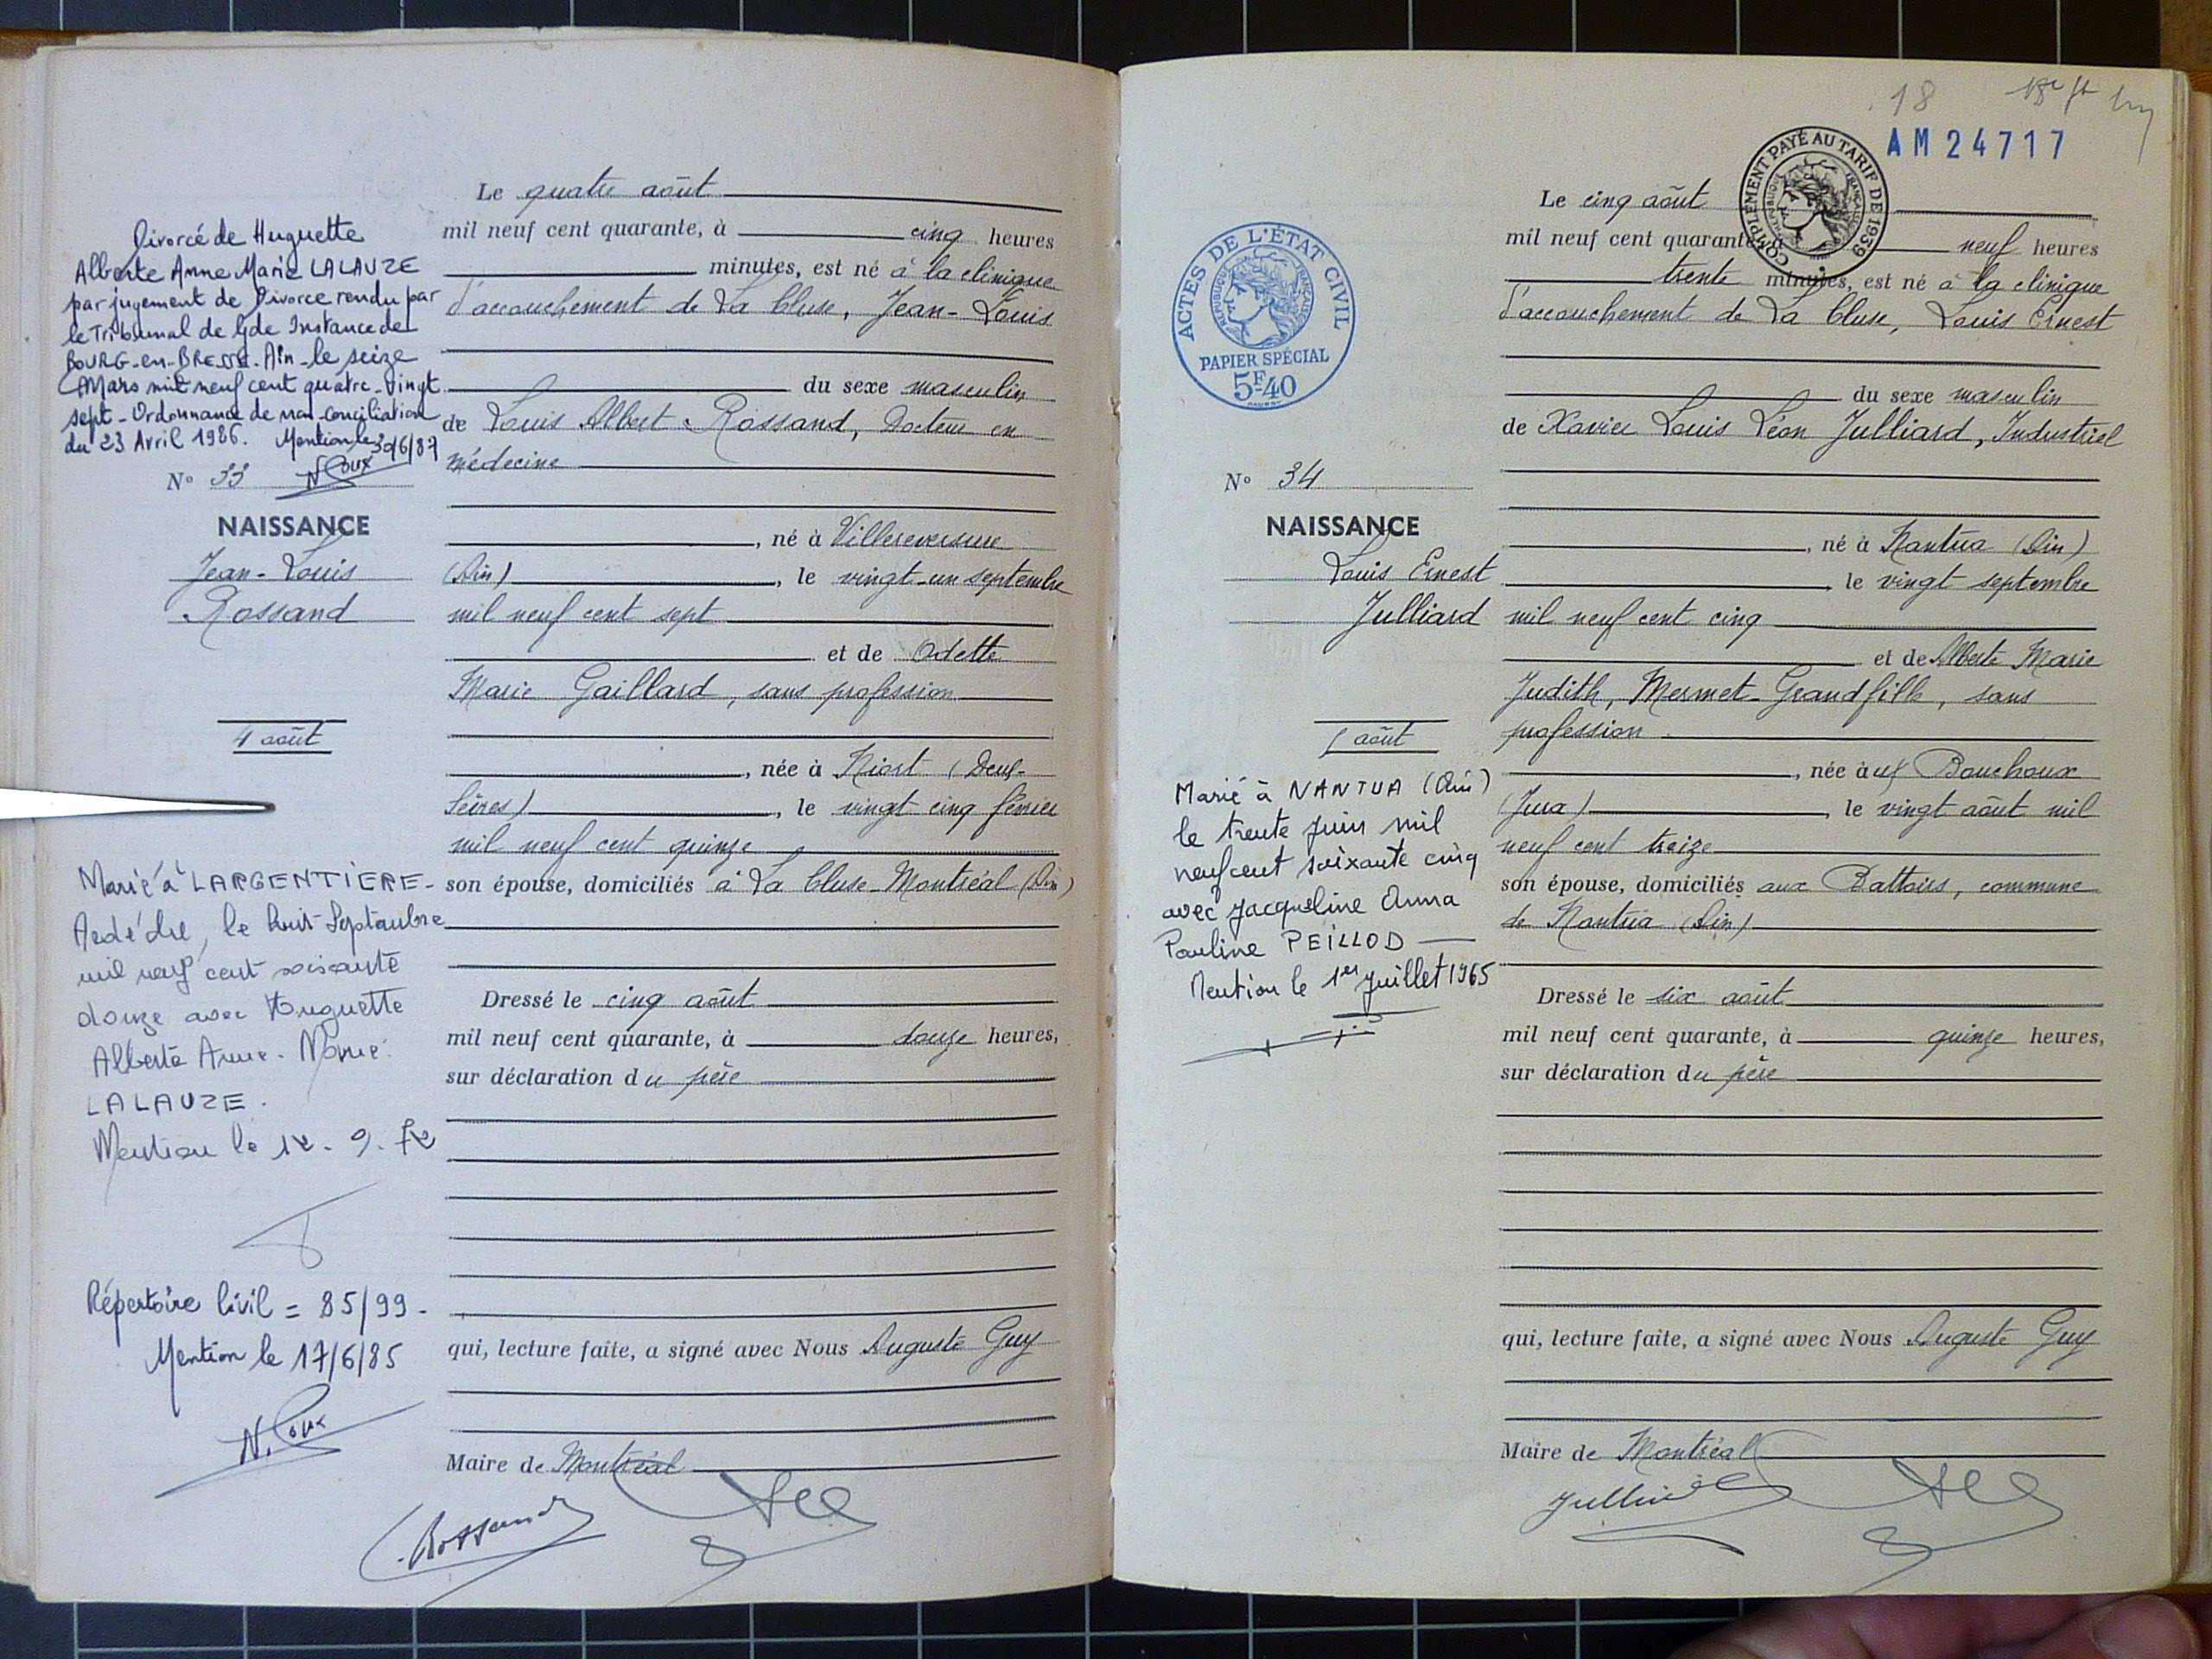 Divorcé de Huguette
Alberte Anne Marie LALAUZE
par jugement de Divorce rendu par
le Tribunal de Gde Instance de
BOURG-en-BRESSE-Ain-le seize
Mars mil neuf cent quatre-vingt
sept-Ordonnance de non-conciliation
du 23 Avril 1986. Mention le 30/6/87
N° 33
NAISSANCE
Jean-Louis
Rossand
4 août
Marié à LARGENTIERE-
Ardèche, le huit Septembre
mil neuf cent soixante
douze avec Huguette
Alberte Anne-Marie
LALAUZE.
Mention le 12-9-72
Répertoire Civil = 85/99-
Mention le 17/6/85
Le quatre août
mil neuf cent quarante, à cinq heures
minutes, est né à la clinique
d'accouchement de La Cluse, Jean-Louis
du sexe masculin
de Louis Albert Rossand, Docteur en
médecine
, né à Villereversure
(Ain), le vingt-un septembre
mil neuf cent sept
et de Odette
Marie Gaillard, sans profession
, née à Niort (Deux-
Sèvres), le vingt cinq février
mil neuf cent quinze
son épouse, domiciliés à La Cluse-Montréal (Ain)
Dressé le cinq août
mil neuf cent quarante, à douze heures,
sur déclaration du père
qui, lecture faite, a signé avec Nous Auguste Guy
Maire de Montréal
Rossand
18
AM 24717
COMPLÉMENT PAYÉ AU TARIF DE 1939
RÉPUBLIQUE FRANÇAISE
ACTES DE L'ÉTAT CIVIL
RÉPUBLIQUE FRANÇAISE
PAPIER SPÉCIAL
5F40
N° 34
NAISSANCE
Louis Ernest
Julliard
5 août
Marié à NANTUA (Ain)
le trente Juin mil
neuf cent soixante cinq
avec Jacqueline Anna
Pauline PEILLOD
Mention le 1er Juillet 1965
Le cinq août
mil neuf cent quarante, à neuf heures
trente minutes, est né à la clinique
d'accouchement de La Cluse, Louis Ernest
du sexe masculin
de Xavier Louis Léon Julliard, Industriel
, né à Nantua (Ain)
le vingt septembre
mil neuf cent cinq
et de Alberte Marie
Judith, Mermet-Grandfille, sans
profession
, née aux Bouchoux
(Jura), le vingt août mil
neuf cent treize
son épouse, domiciliés aux Battoirs, commune
de Nantua (Ain)
Dressé le six août
mil neuf cent quarante, à quinze heures,
sur déclaration du père
qui, lecture faite, a signé avec Nous Auguste Guy
Maire de Montréal